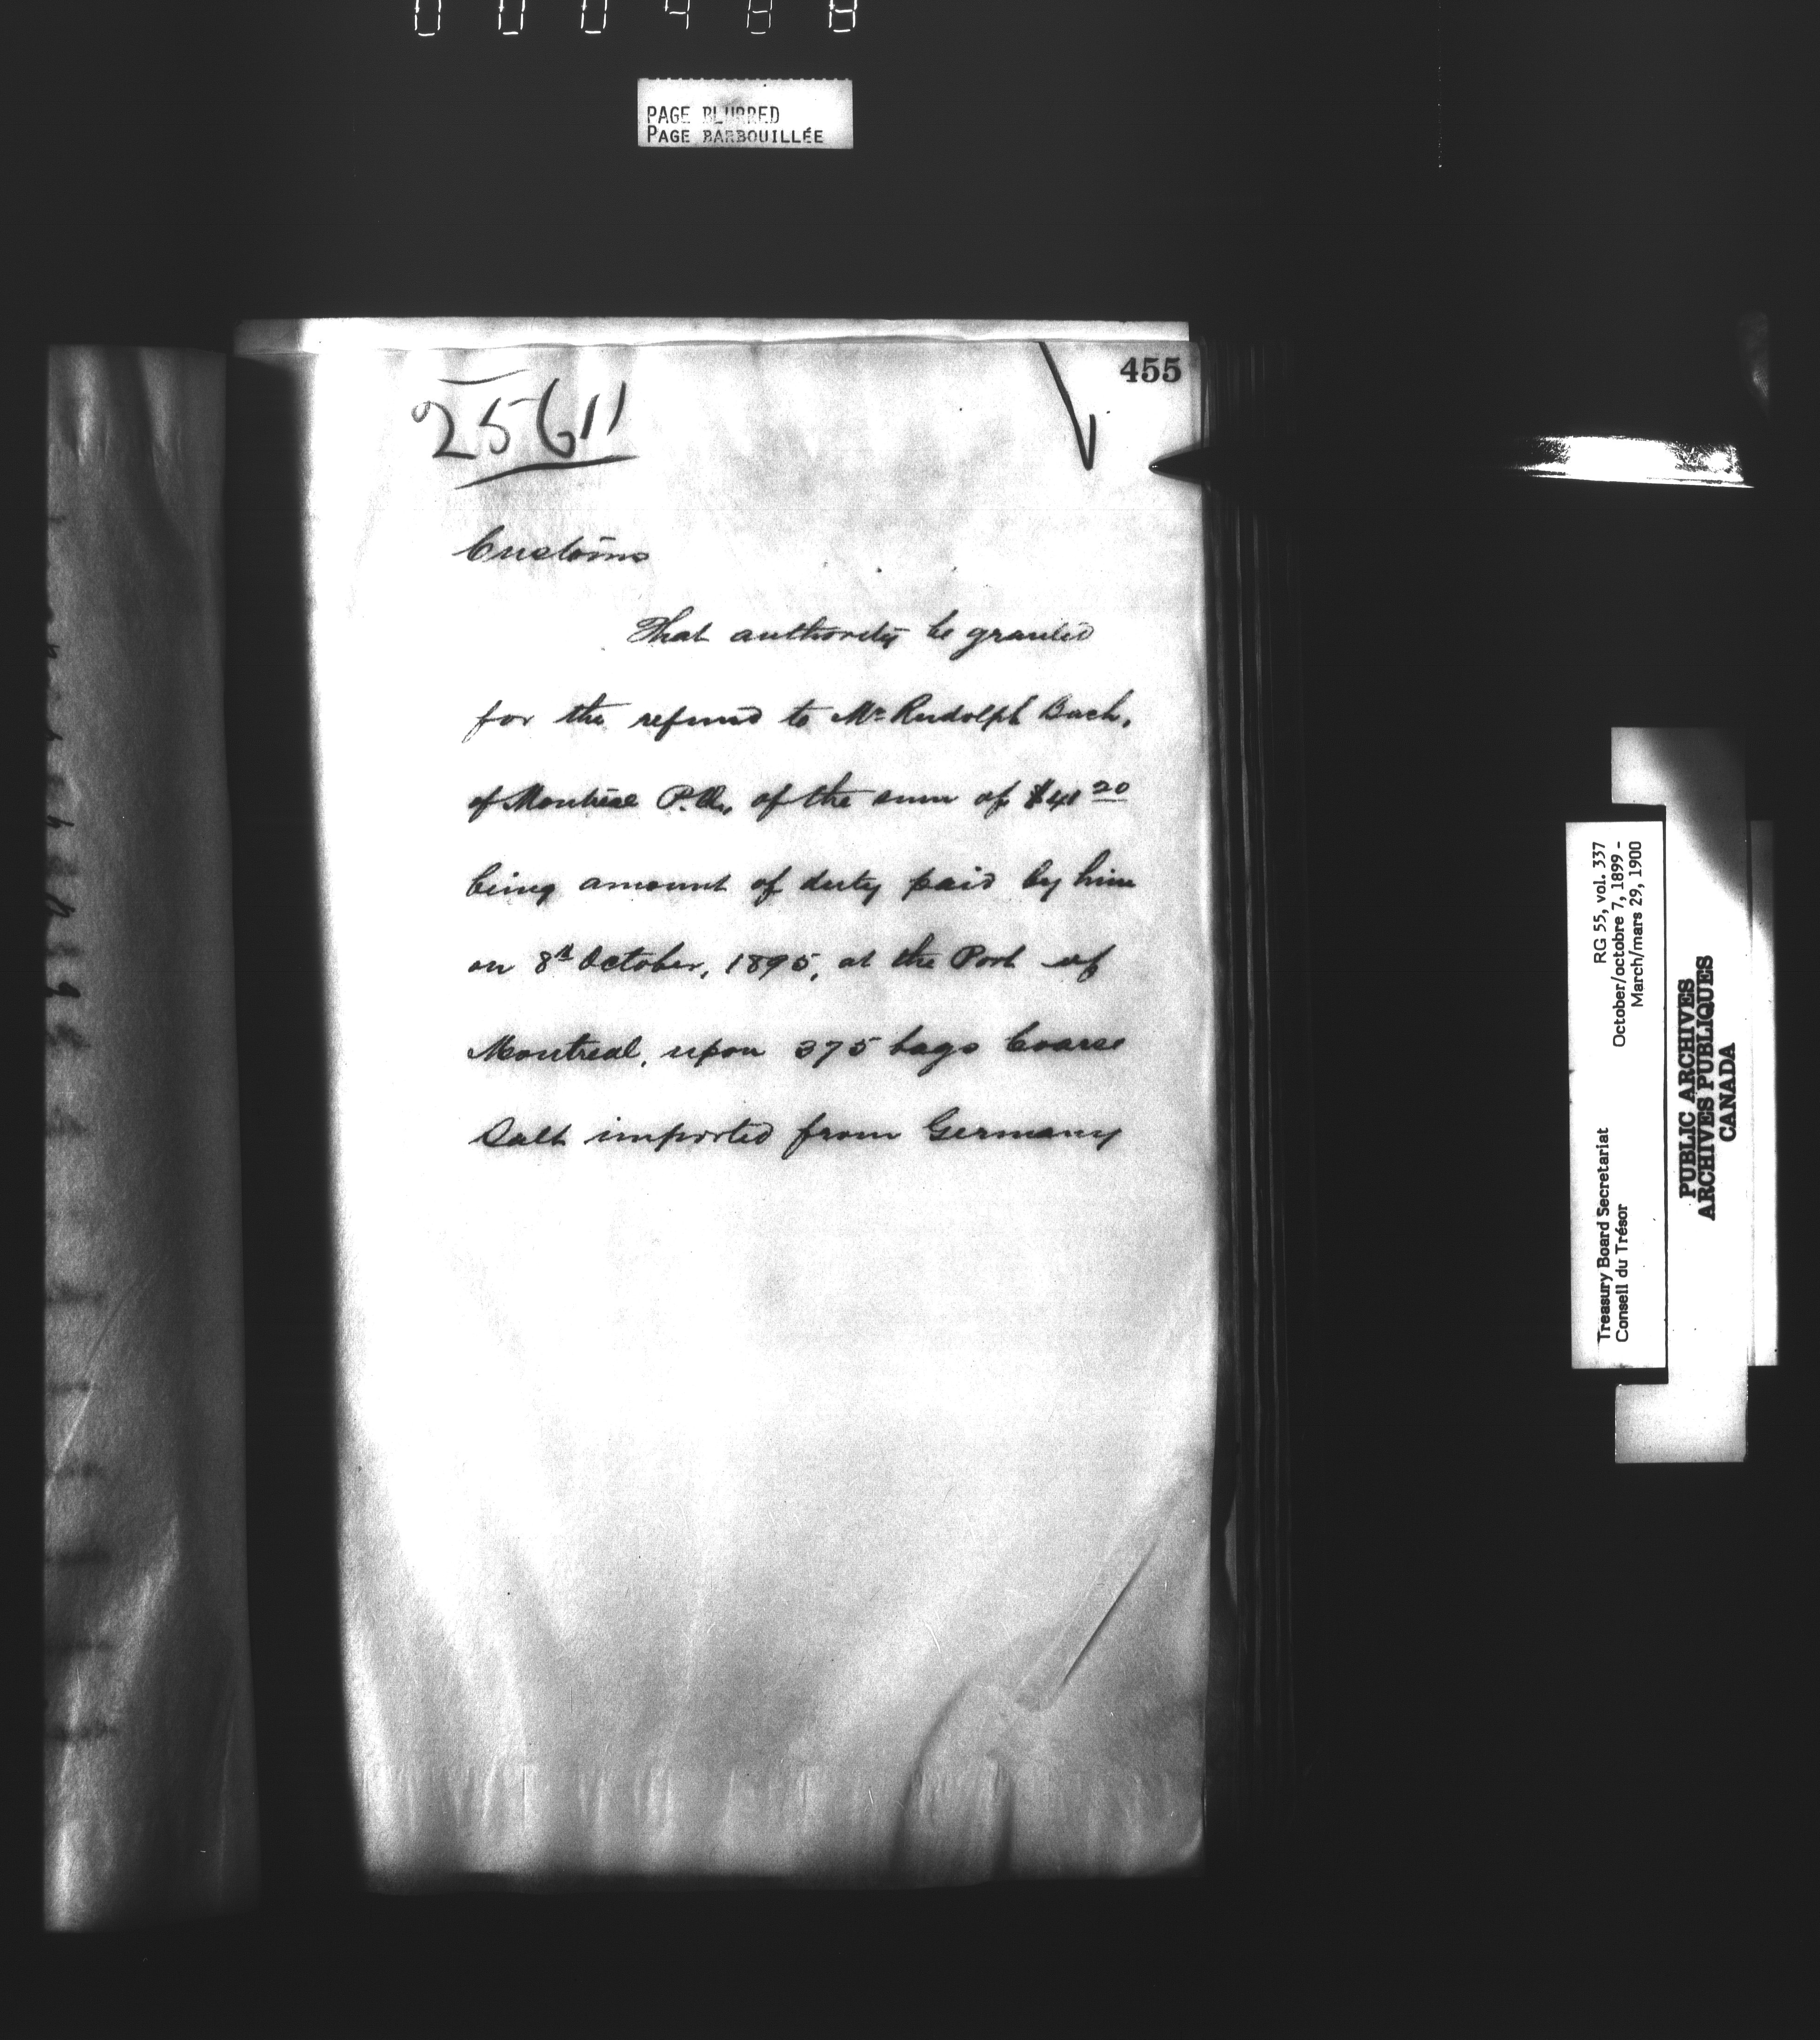 PAGE BLURRED
PAGE BARBOUILLÉE
455
25611
Customs
That authority be granted
for the refund to Mr Rudolph Bach,
of Montreal P.Q., of the sum of $41 20
being amount of duty paid by him
on 8th October, 1895, at the Port of
Montreal, upon 375 bags Coarse
Salt imported from Germany
RG 55, vol. 337
October/octobre 7, 1899 -
March/mars 29, 1900
Treasury Board Secretariat
Conseil du Trésor
PUBLIC ARCHIVES
ARCHIVES PUBLIQUES
CANADA